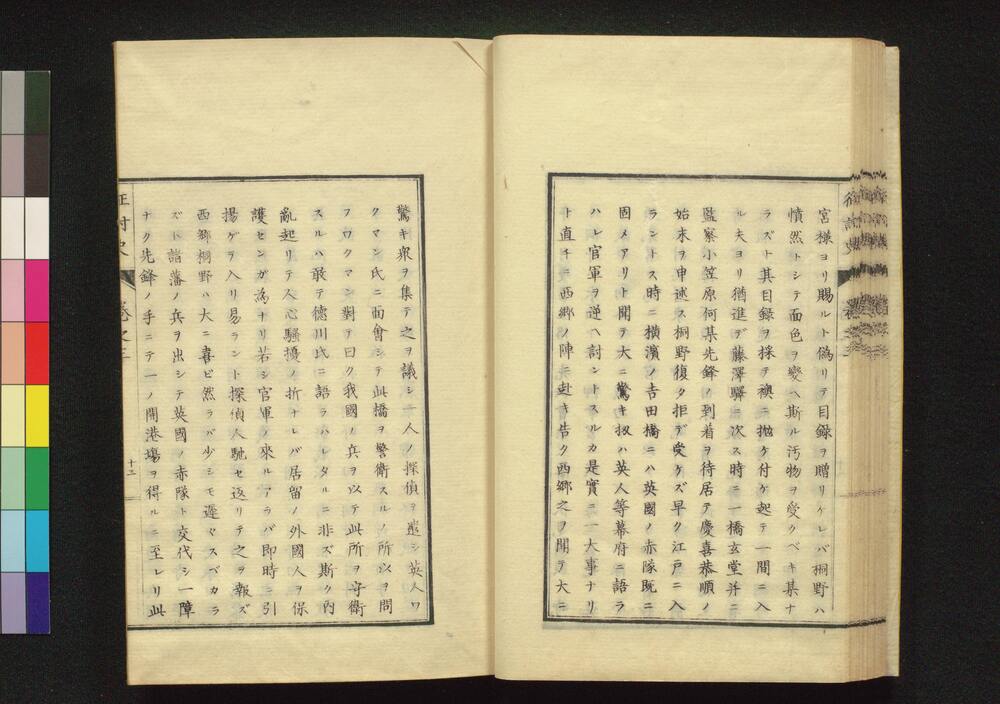 宮様ヨリ賜ルト偽リテ目録ヲ贈リケレバ桐野ハ
憤然トシテ面色ヲ變ヘ斯ル汚物ヲ受クベキ某ナ
ラズト其目録ヲ採テ襖ニ抛ケ付ケ起テ一間ニ入
ル夫ヨリ猶進デ藤澤驛ニ次ス時ニ一橋玄堂并ニ
監察小笠原何某先鋒ノ到着ヲ待居テ慶喜恭順ノ
始末ヲ申述ス桐野復タ拒デ受ケズ早ク江戸ニ入
ラントス時ニ横濱ノ吉田橋ニハ英國ノ赤隊既ニ
固メアリト聞テ大ニ驚キ扨ハ英人等幕府ニ語ラ
ハレ官軍ヲ逆ヘ討ントスルカ是實ニ一大事ナリ
ト直チニ西郷ノ陣ニ赴キ告ク西郷之ヲ聞テ大ニ
驚キ衆ヲ集テ之ヲ議シ一人ノ探偵ヲ遣シ英人ワ
クマン氏ニ面會シテ此橋ヲ警衛スルノ所以ヲ問
フワクマン對テ曰ク我國ノ兵ヲ以テ此所ヲ守衛
スルハ敢テ德川氏ニ語ラハレタルニ非ズ斯ク内
亂起リテ人心騒擾ノ折ナレバ居留ノ外國人ヲ保
護センガ為ナリ若シ官軍ノ來ルアラバ即時ニ引
揚ゲテ入リ易ラント探偵人馳セ返リテ之ヲ報ズ
西郷桐野ハ大ニ喜ビ然ラバ少シモ遲々スベカラ
ズト諸藩ノ兵ヲ出シテ英國ノ赤隊ト交代シ一障
ナク先鋒ノ手ニテ一ノ開港場ヲ得ルニ至レリ此
征討史
巻之三
十二